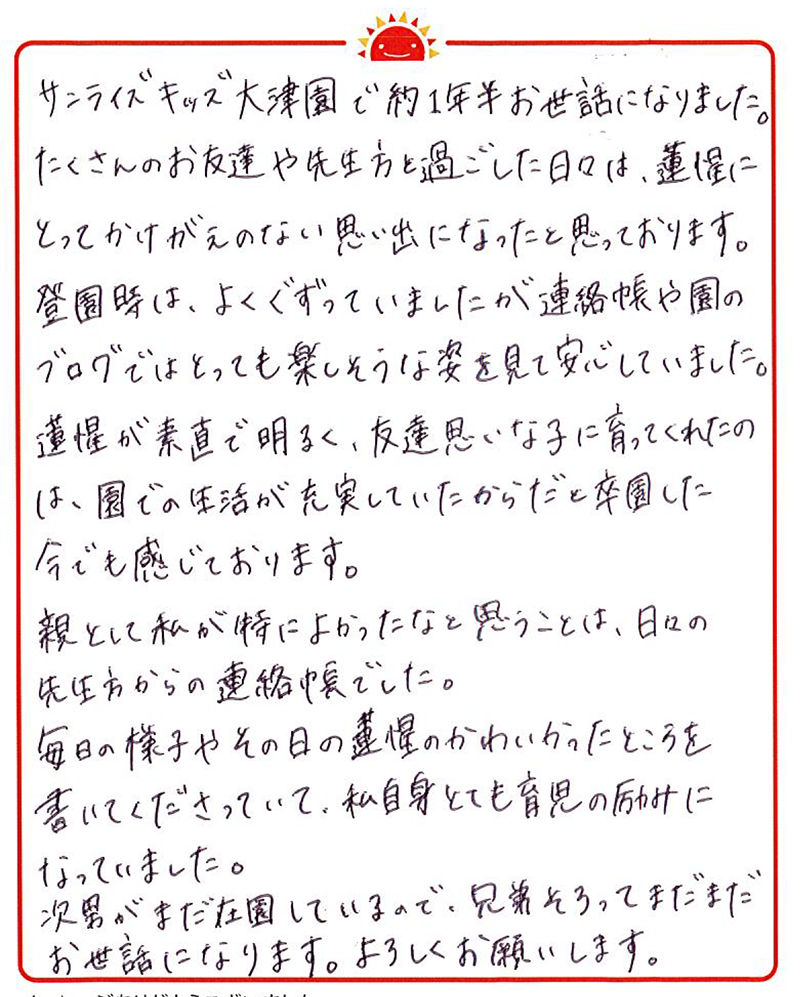 サンライズキッズ大津園で約1年半お世話になりました。
たくさんのお友達や先生方と過ごした日々は、蓮惺に
とってかけがえのない思い出になったと思っております。
登園時は、よくぐずっていましたが連絡帳や園の
ブログではとっても楽しそうな姿を見て安心していました。
蓮惺が素直で明るく、友達思いな子に育ってくれたの
は、園での生活が充実していたからだと卒園した
今でも感じております。
親として私が特によかったなと思うことは、日々の
先生方からの連絡帳でした。
毎日の様子やその日の蓮惺のかわいかったところを
書いてくださっていて、私自身とても育児の励みに
なっていました。
次男がまだ在園しているので、兄弟そろってまだまだ
お世話になります。よろしくお願いします。